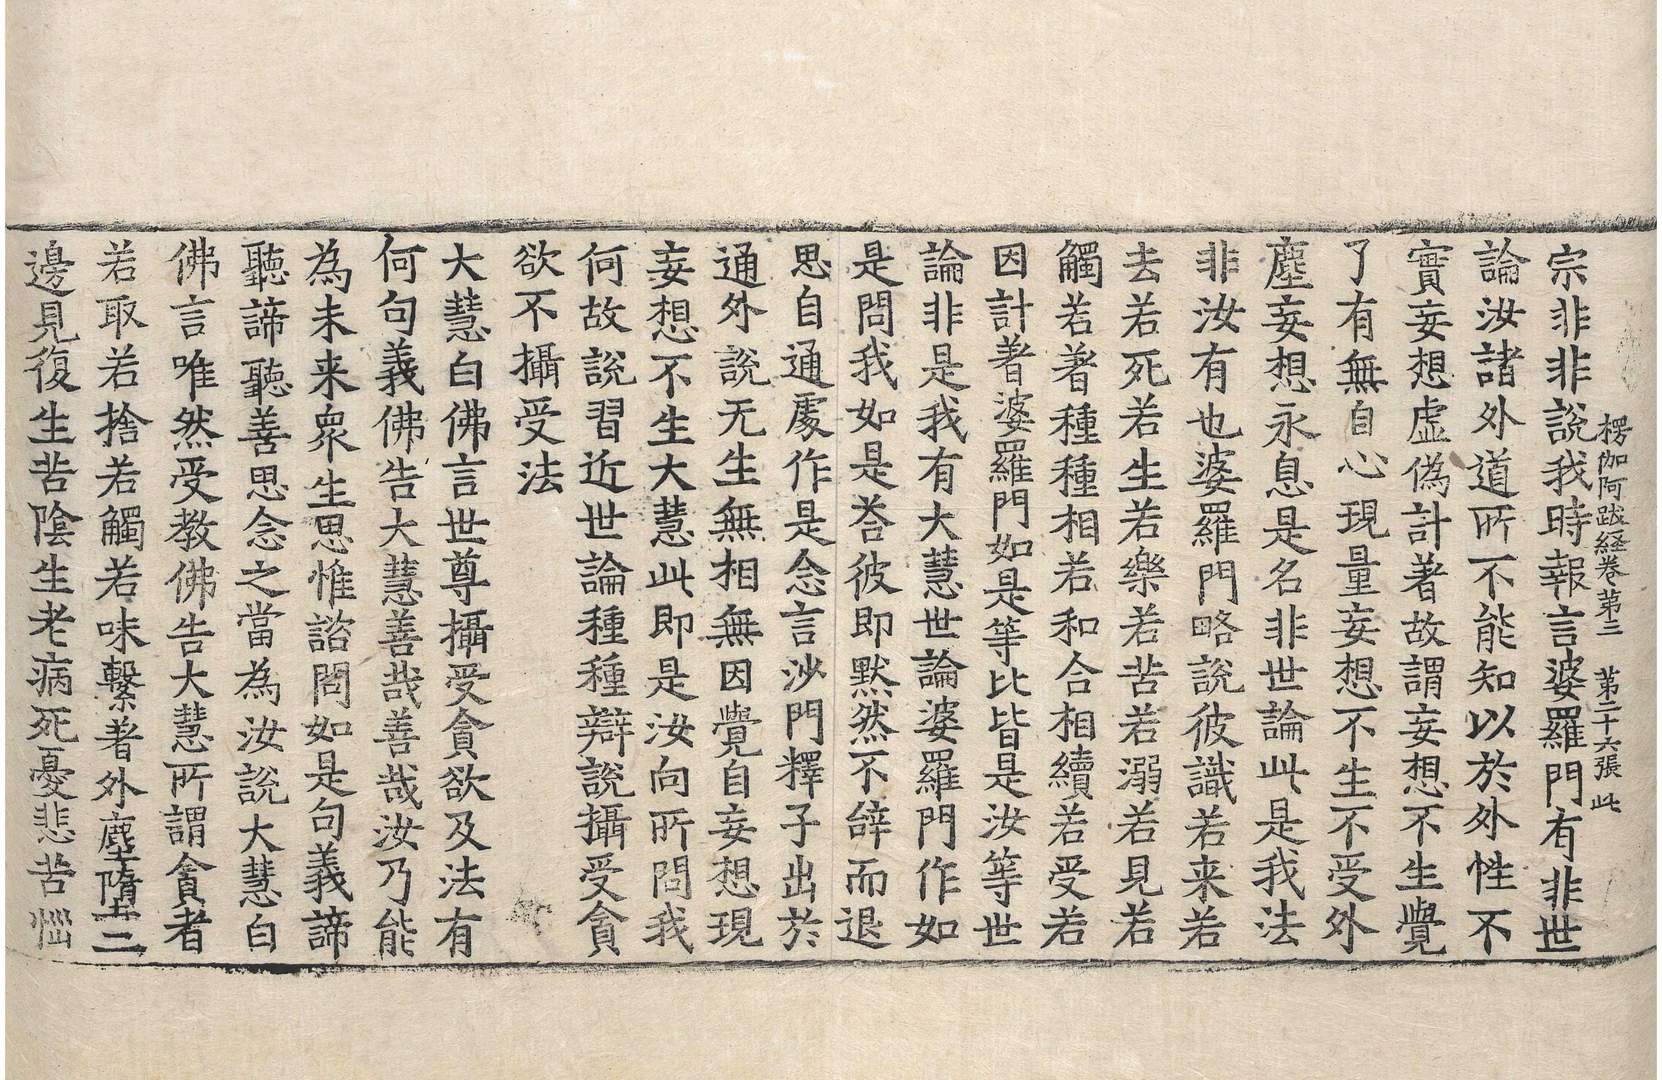 楞伽阿跋経卷第三 第二十六張 此
宗非非說我時報言婆羅門有非世
論汝諸外道所不能知以於外性不
實妄想虛偽計著故謂妄想不生覺
了有無自心現量妄想不生不受外
塵妄想永息是名非世論此是我法
非汝有也婆羅門略說彼識若来若
去若死若生若樂若苦若溺若見若
觸若著種種相若和合相續若受若
因計著婆羅門如是等比皆是汝等世
論非是我有大慧世論婆羅門作如
是問我如是荅彼即默然不辝而退
思自通處作是念言沙門釋子出於
通外說无生無相無因覺自妄想現
妄想不生大慧此即是汝向所問我
何故說習近世論種種辯說攝受貪
欲不攝受法
大慧白佛言世尊攝受貪欲及法有
何句義佛告大慧善哉善哉汝乃能
為未来衆生思惟諮問如是句義諦
聽諦聽善思念之當為汝說大慧白
佛言唯然受教佛告大慧所謂貪者
若取若捨若觸若味繫著外塵墮二
邊見復生苦陰生老病死憂悲苦惱